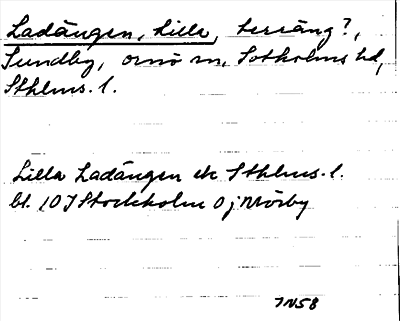 Ladängen, Lilla, terräng?,
Sundby, Ornö sn, Sotholms hd,
Sthlms. l.
Lilla Ladängen ek Sthlms. l.
bl. 10 J Stockholm 0 j Mörby
7N58